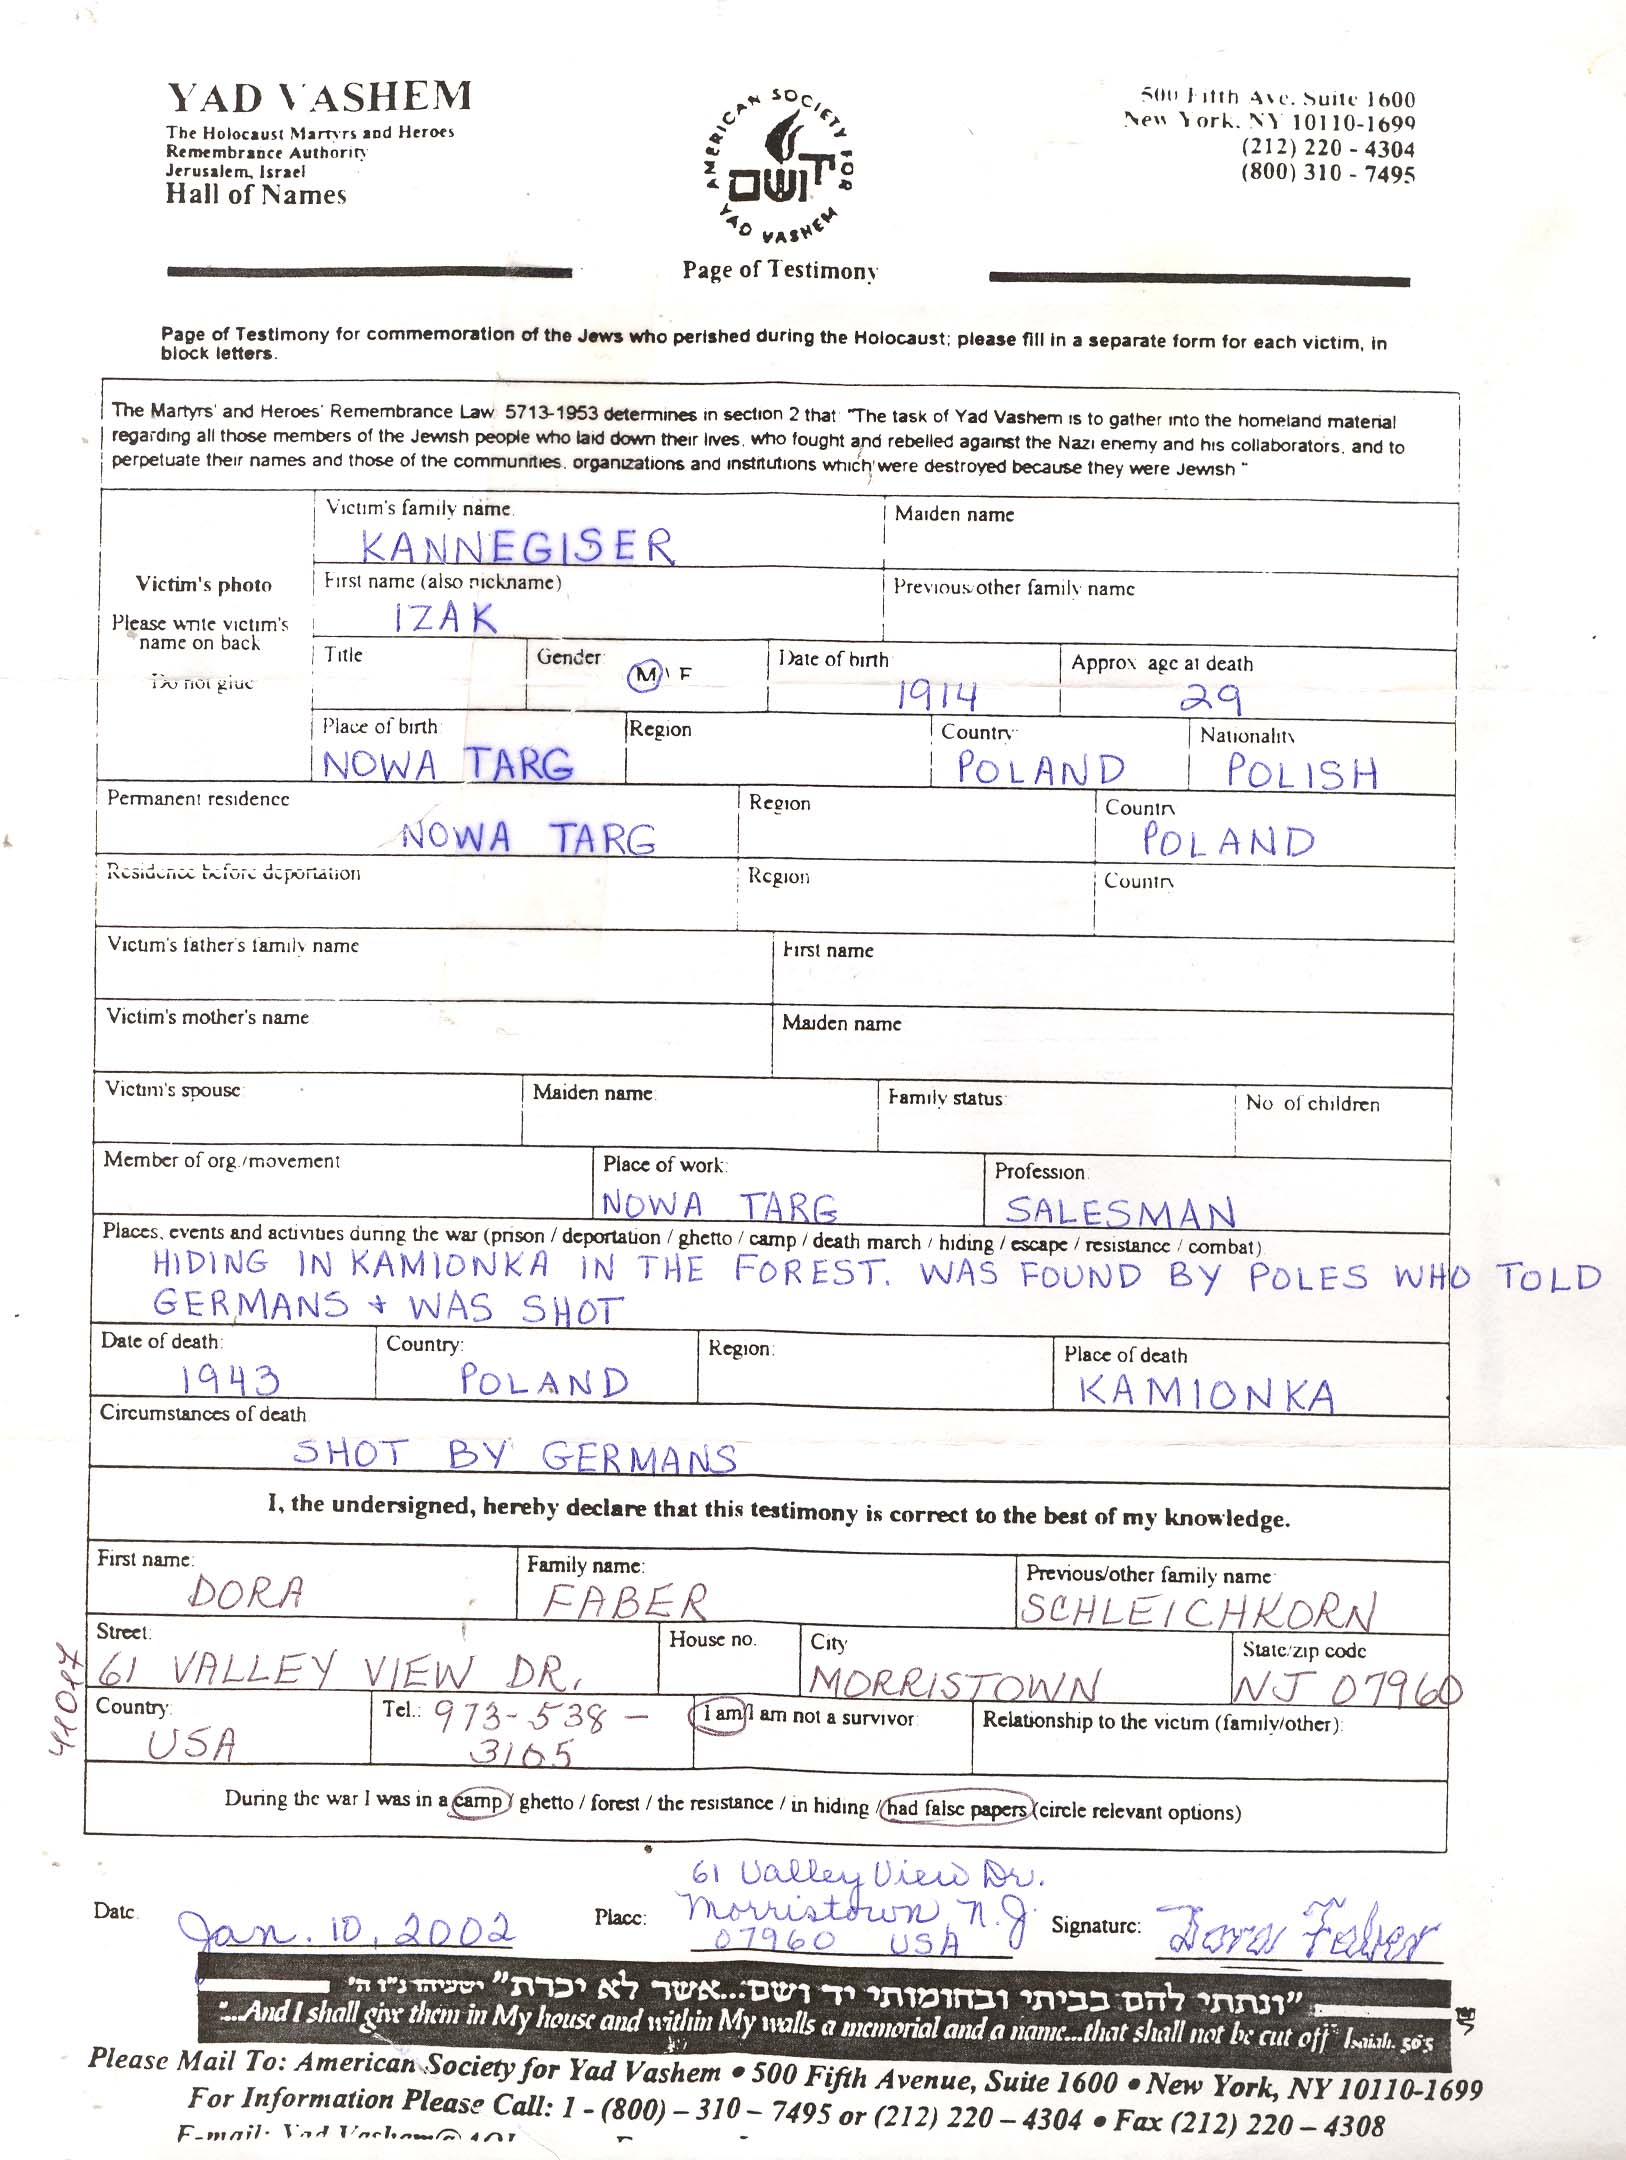 YAD VASHEM
The Holocaust Martyrs and Heroes
Remembrance Authority
Jerusalem, Israel
Hall of Names
AMERICAN SOCIETY FOR
יד ושם
YAD VASHEM
500 Fifth Ave. Suite 1600
New York, NY 10110-1699
(212) 220 - 4304
(800) 310 - 7495
Page of Testimony
Page of Testimony for commemoration of the Jews who perished during the Holocaust; please fill in a separate form for each victim, in
block letters.
The Martyrs' and Heroes' Remembrance Law 5713-1953 determines in section 2 that "The task of Yad Vashem is to gather into the homeland material
regarding all those members of the Jewish people who laid down their lives, who fought and rebelled against the Nazi enemy and his collaborators, and to
perpetuate their names and those of the communities, organizations and institutions which were destroyed because they were Jewish"
Victim's photo
Please write victim's
name on back
Do not glue
Victim's family name Maiden name
KANNEGISER
First name (also nickname) Previous/other family name
IZAK
Title Gender: M \ F Date of birth Approx age at death
1914 29
Place of birth Region Country Nationality
NOWA TARG POLAND POLISH
Permanent residence Region Country
NOWA TARG POLAND
Residence before deportation Region Country
Victim's father's family name First name
Victim's mother's name Maiden name
Victim's spouse Maiden name Family status No of children
Member of org./movement Place of work: Profession
NOWA TARG SALESMAN
Places, events and activities during the war (prison / deportation / ghetto / camp / death march / hiding / escape / resistance / combat)
HIDING IN KAMIONKA IN THE FOREST. WAS FOUND BY POLES WHO TOLD
GERMANS + WAS SHOT
Date of death: Country: Region: Place of death
1943 POLAND KAMIONKA
Circumstances of death
SHOT BY GERMANS
I, the undersigned, hereby declare that this testimony is correct to the best of my knowledge.
First name: Family name: Previous/other family name
DORA FABER SCHLEICHKORN
Street: House no. City State/zip code
61 VALLEY VIEW DR. MORRISTOWN NJ 07960
Country: Tel.: 973-538- I am/I am not a survivor Relationship to the victim (family/other):
USA 3105
During the war I was in a camp / ghetto / forest / the resistance / in hiding / had false papers (circle relevant options)
Date Jan. 10, 2002 Place: 61 Valley View Dr.
Morristown, N.J. Signature: Dora Faber
07960 USA
"ונתתי להם בביתי ובחומותי יד ושם...אשר לא יכרת" ישעיהו נ"ו ה'
"...And I shall give them in My house and within My walls a memorial and a name...that shall not be cut off" Isaiah. 56:5
Please Mail To: American Society for Yad Vashem • 500 Fifth Avenue, Suite 1600 • New York, NY 10110-1699
For Information Please Call: 1 - (800) – 310 – 7495 or (212) 220 – 4304 • Fax (212) 220 – 4308